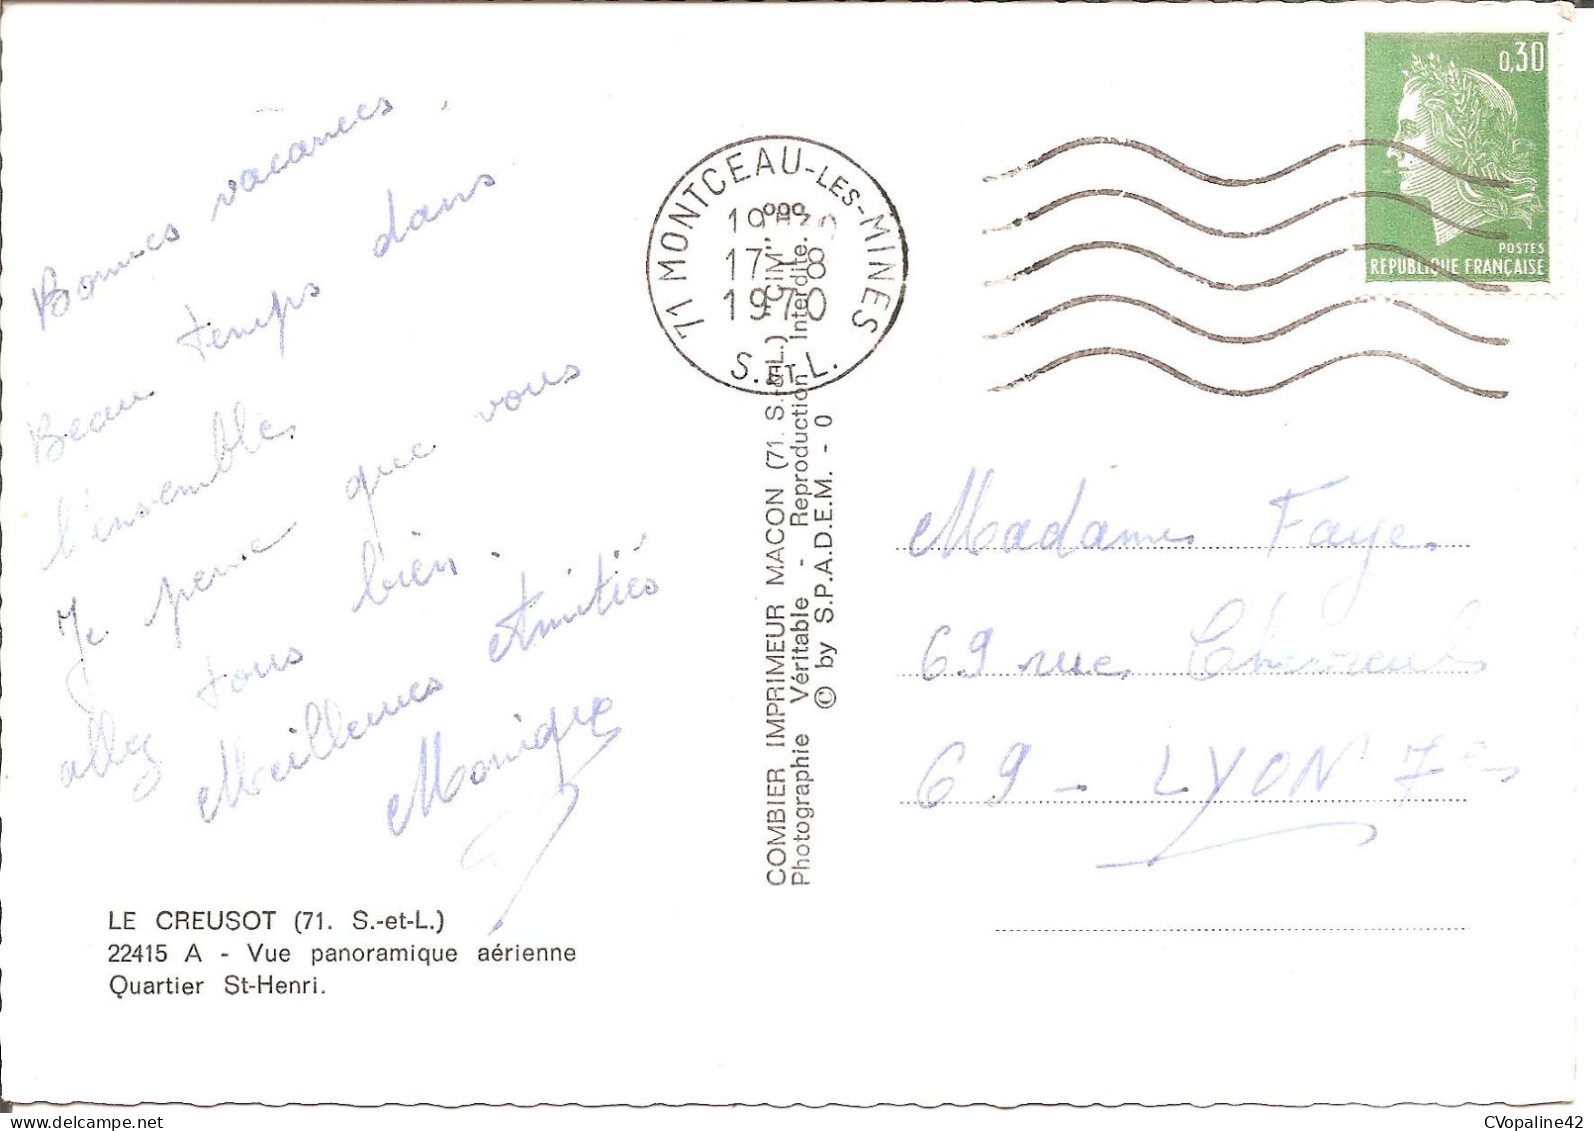 Bonnes vacances
Beau temps dans
l'ensemble,
Je pense que vous
allez tous bien.
Meilleures Amitiés
Monique
LE CREUSOT (71. S.-et-L.)
22415 A - Vue panoramique aérienne
Quartier St-Henri.
COMBIER IMPRIMEUR MACON (71. S.-et-L.) "CIM"
Photographie Véritable - Reproduction Interdite.
© by S.P.A.D.E.M. - 0
71 MONTCEAU-LES-MINES
17-8
1970
S. ET L.
0,30
POSTES
REPUBLIQUE FRANÇAISE
Madame Faye
69 rue Chevreul
69 - LYON 7e
CVopaline42